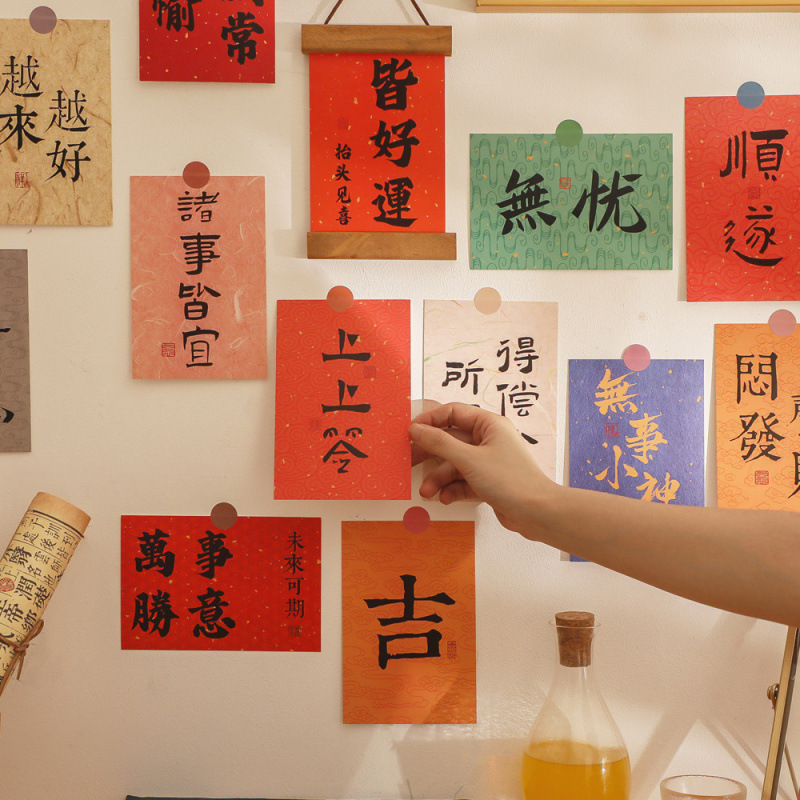 越來
越好
常
愉
皆好運
抬头见喜
無忧
順遂
諸事皆宜
上上签
得偿
所
無事
小神
悶
發
萬事
勝意
未來可期
吉